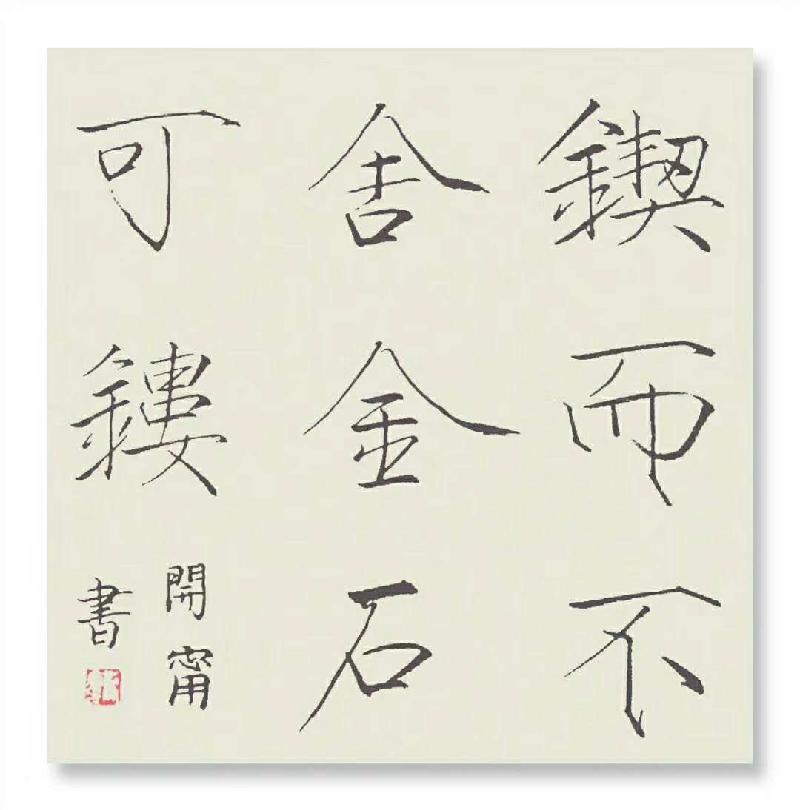 鍥而不
舍金石
可鏤
開甯
書